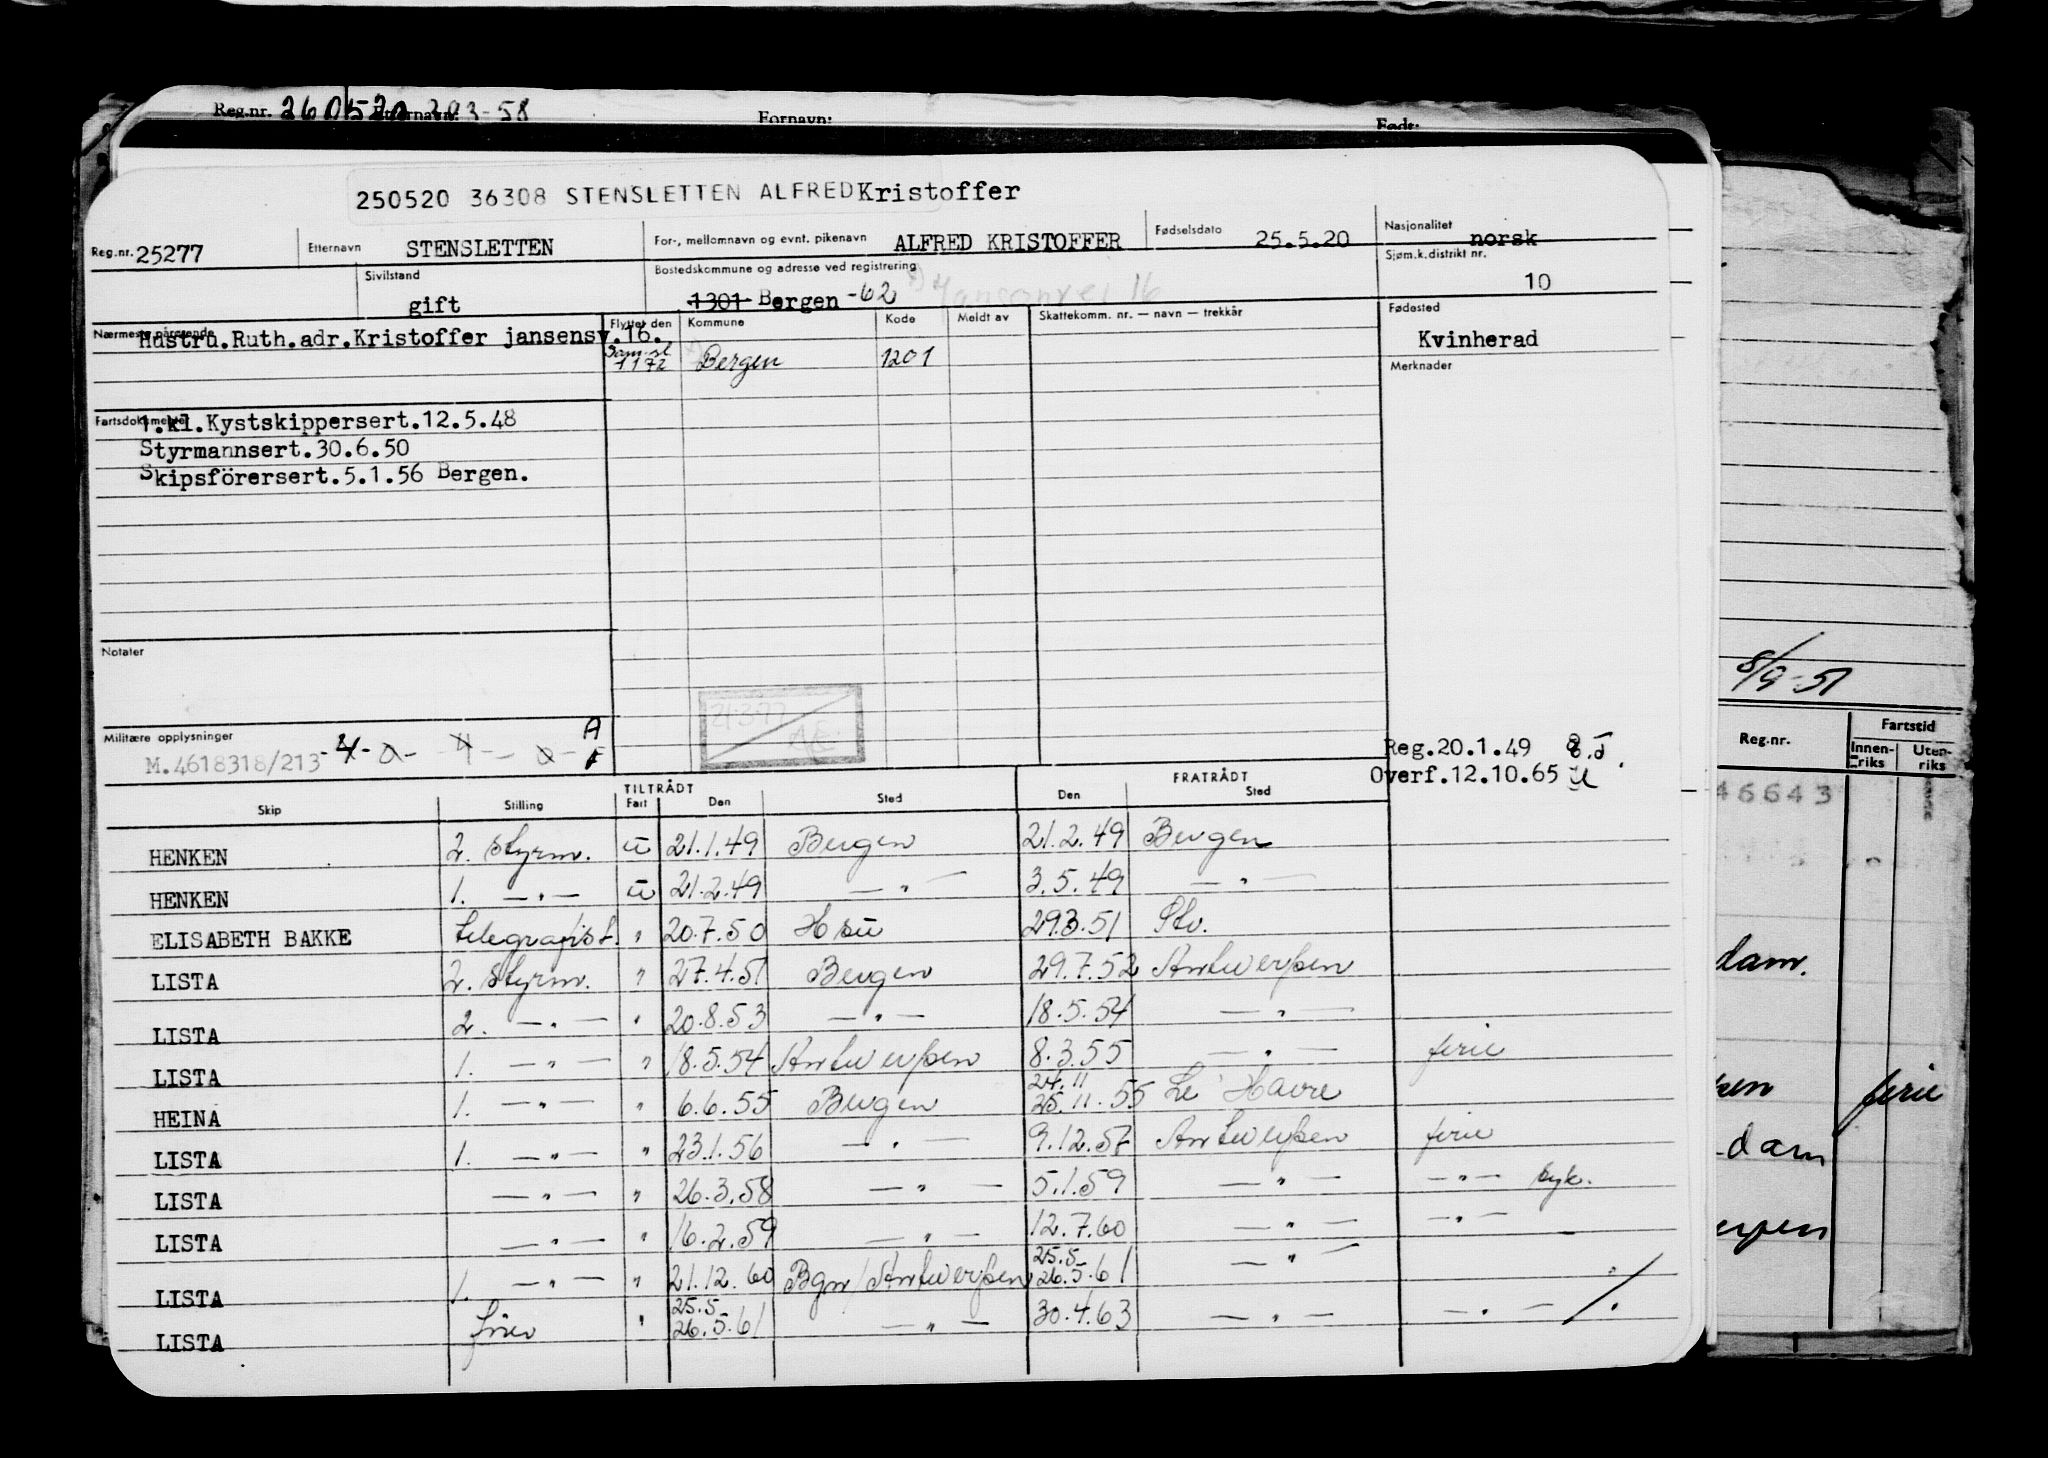 Reg.nr. 260520 293-58 Fornavn: Født:
250520 36308 STENSLETTEN ALFRED Kristoffer
Reg.nr. 25277 Etternavn STENSLETTEN For-, mellomnavn og evnt. pikenavn ALFRED KRISTOFFER Fødselsdato 25.5.20 Nasjonalitet norsk
Sivilstand gift Bostedskommune og adresse ved registrering 1301 Bergen -62 Sjøm.k.distrikt nr. 10
Nærmeste pårørende Hustru.Ruth.adr.Kristoffer jansensv.16. Flyttet den Kommune Kode Meldt av Skattekomm. nr. — navn — trekkår Fødested
Kvinherad
1172 Bergen 1201
Merknader
Fartsdokumenter 1.kl.Kystskippersert.12.5.48
Styrmannsert.30.6.50
Skipsförersert.5.1.56 Bergen.
Notater
8/9-51
21·3·77
Militære opplysninger
M.4618318/213 -4-a- -4-a- A F
Reg.20.1.49
Overf.12.10.65
TILTRÅDT FRATRÅDT
Skip Stilling Fart Den Sted Den Sted
HENKEN 2. Styrm. u 21.1.49 Bergen 21.2.49 Bergen
HENKEN 1. —"— u 21.2.49 —"— 3.5.49 —"—
ELISABETH BAKKE telegrafist. " 20.7.50 29.3.51 Stv.
LISTA 2. Styrm. " 27.4.51 Bergen 29.7.52 Antwerpen
LISTA 2. —"— " 20.8.53 —"— 18.5.54 —"—
LISTA 1. —"— " 18.5.54 Antwerpen 8.3.55 —"— ferie
HEINA 1. —"— " 6.6.55 Bergen 24.11 25.11.55 Le Havre
LISTA 1. —"— " 23.1.56 —"— 9.12.57 Antwerpen ferie
LISTA —"— " 26.3.58 —"— 5.1.59 —"— —"— syk.
LISTA —"— " 16.2.59 —"— 12.7.60 —"— —"—
LISTA 1. —"— " 21.12.60 Bgn/Antwerpen 25.5 26.5.61 —"—
LISTA fører " 25.5 26.5.61 —"— 30.4.63 —"— —"— /.
Reg.nr. Fartstid
Innenriks Utenriks
46643
dam.
pen ferie
-dam
erpen